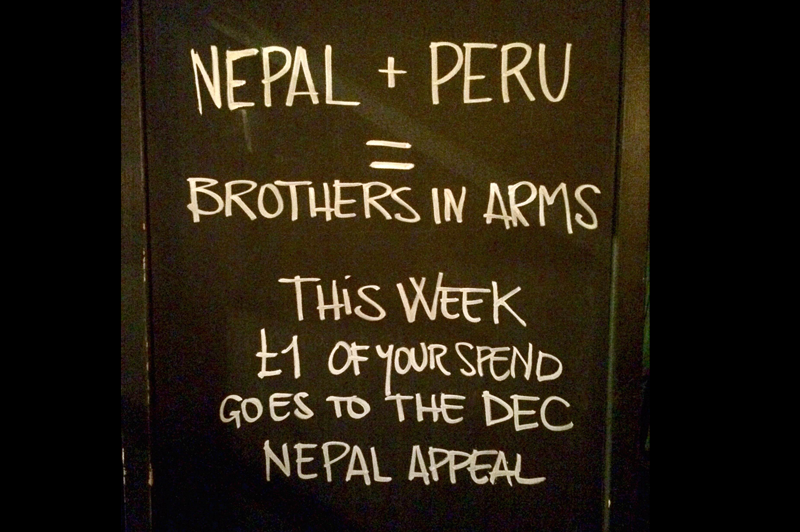 NEPAL + PERU
=
BROTHERS IN ARMS
THIS WEEK
£1 OF YOUR SPEND
GOES TO THE DEC
NEPAL APPEAL